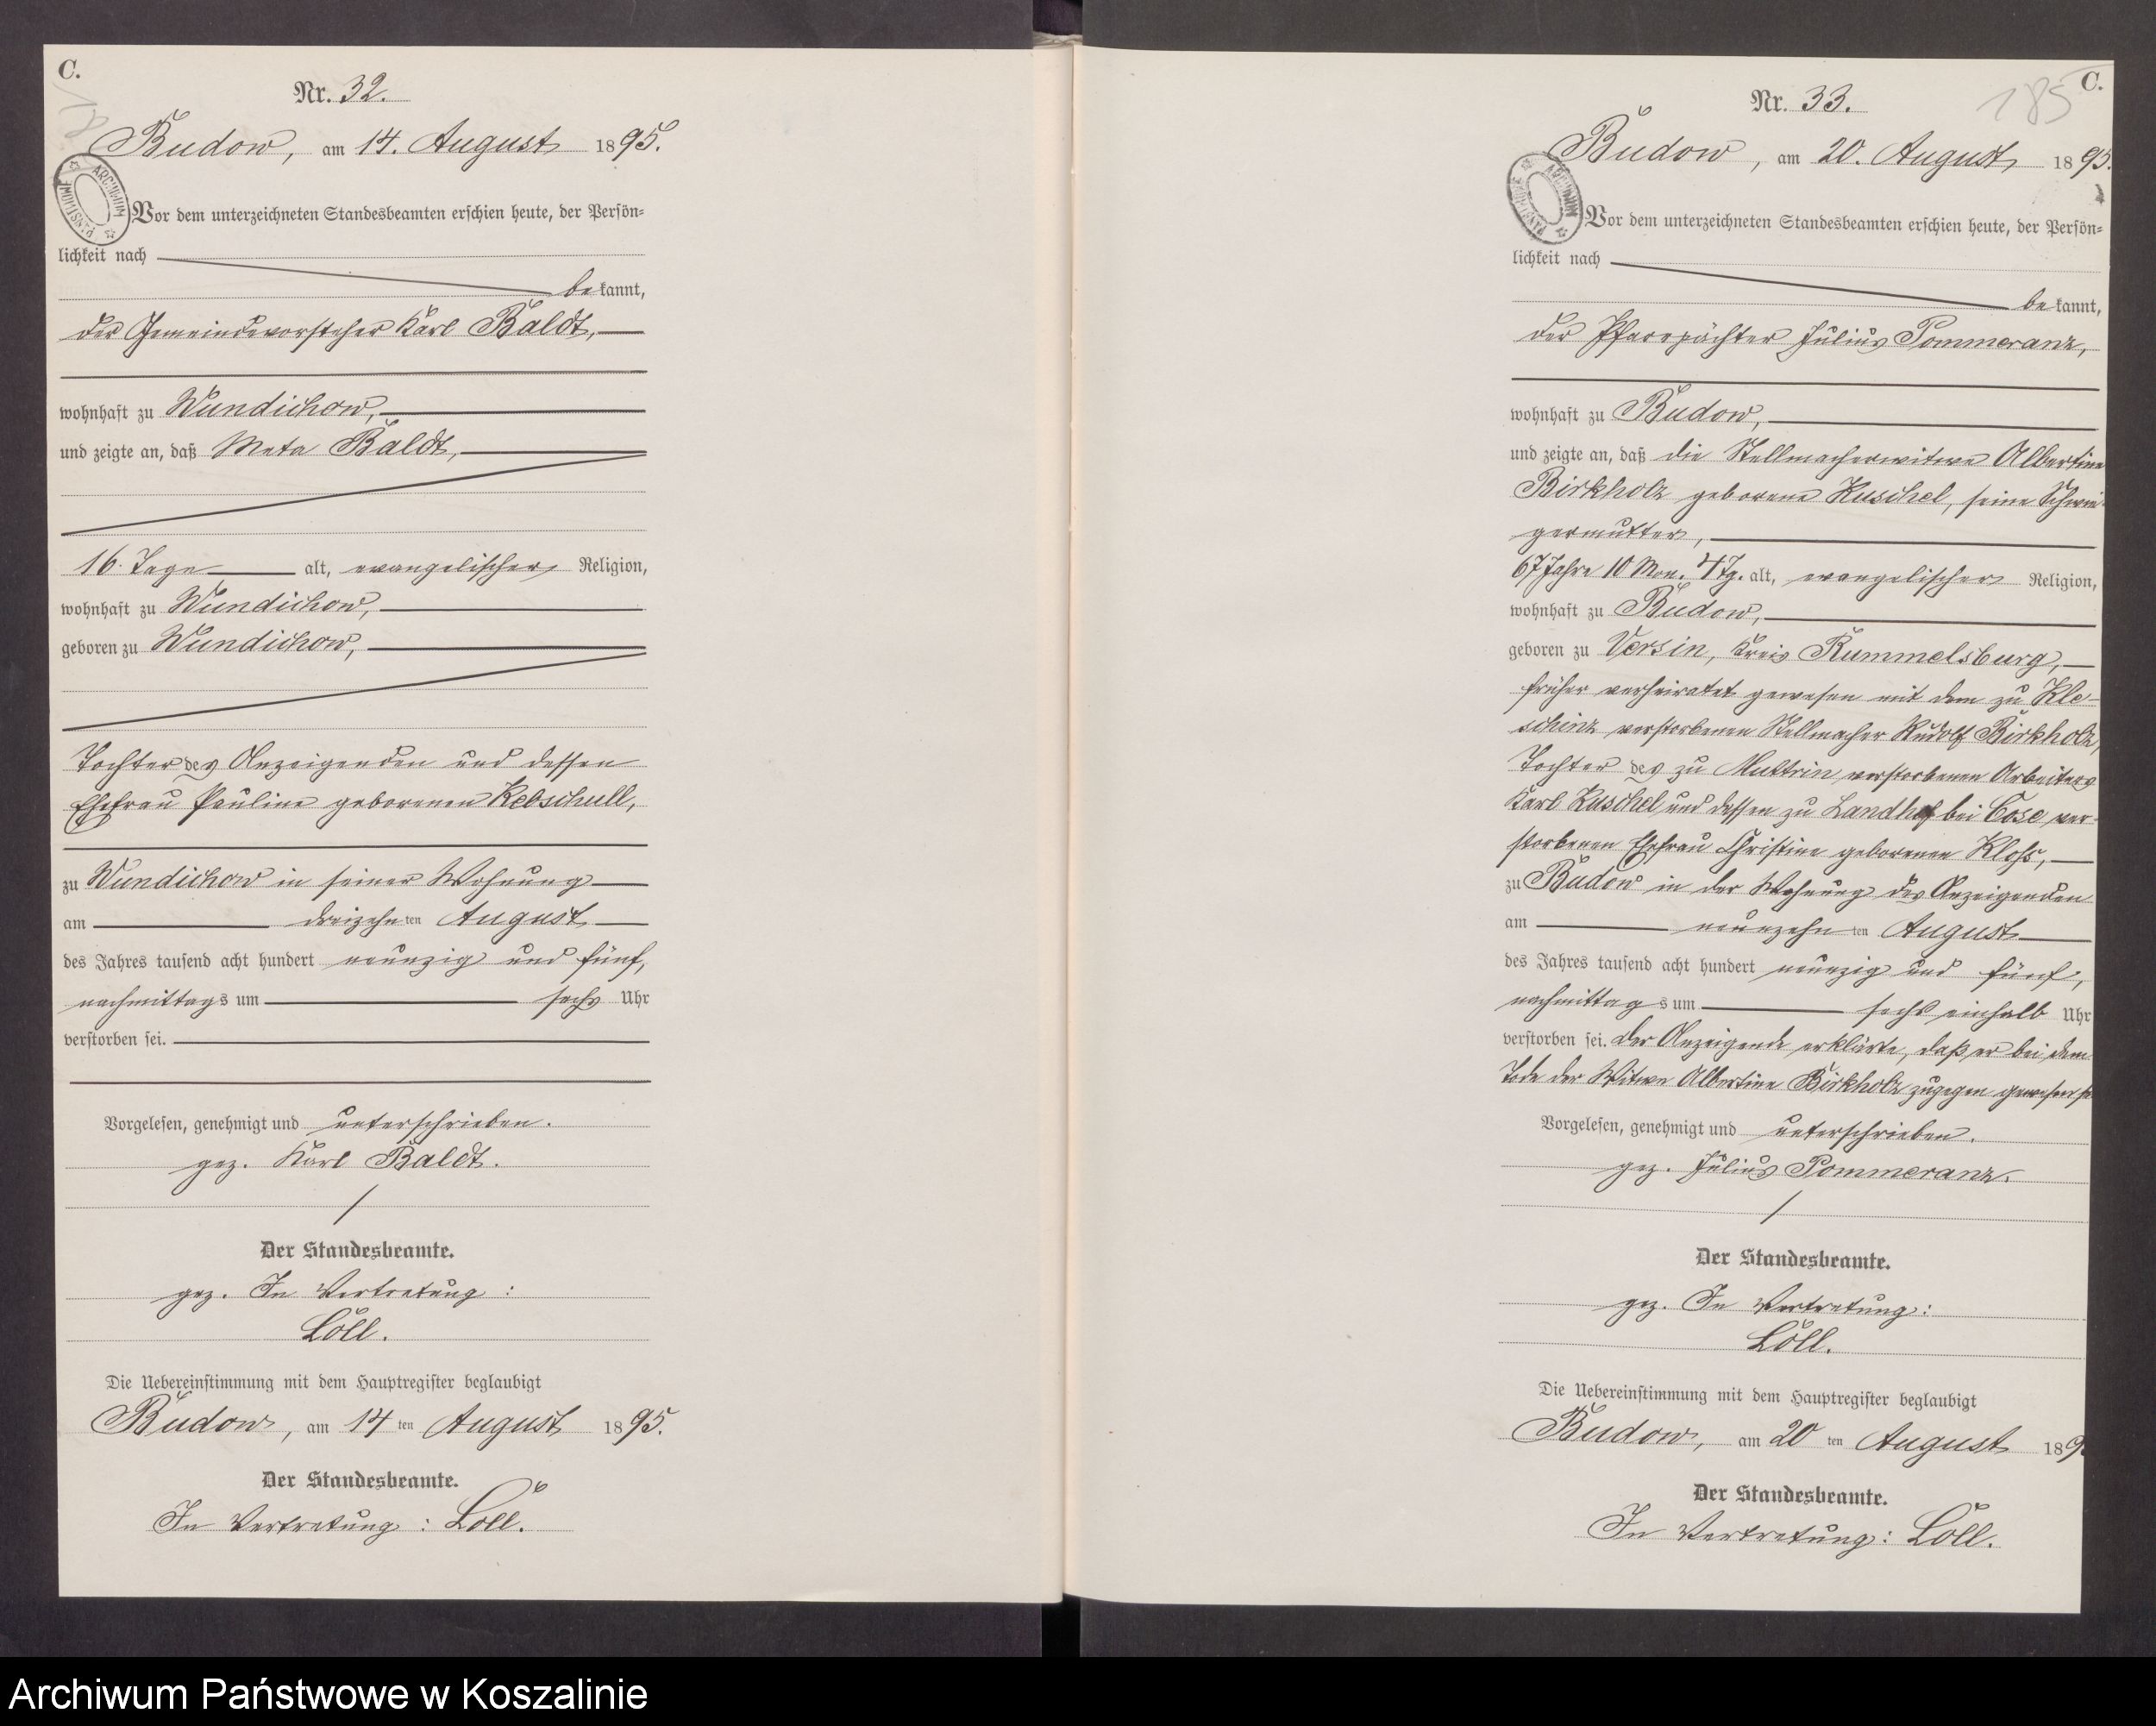 C.
Nr. 32.
Budow, am 14. August 1895.
ARCHIWUM PAŃSTWOWE
Vor dem unterzeichneten Standesbeamten erschien heute, der Persön=
lichkeit nach
bekannt,
der Gemeindevorsteher Karl Baldt,
wohnhaft zu Wundichow,
und zeigte an, daß Meta Baldt,
16 Tage alt, evangelischer Religion,
wohnhaft zu Wundichow,
geboren zu Wundichow,
Tochter des Anzeigenden und dessen
Ehefrau Pauline geborenen Kebschull,
zu Wundichow in seiner Wohnung
am dreizehnten August
des Jahres tausend acht hundert neunzig und fünf,
nachmittags um sechs Uhr
verstorben sei.
Vorgelesen, genehmigt und unterschrieben.
gez. Karl Baldt.
Der Standesbeamte.
gez. In Vertretung:
Löll.
Die Uebereinstimmung mit dem Hauptregister beglaubigt
Budow, am 14ten August 1895.
Der Standesbeamte.
In Vertretung: Löll.
C.
185
Nr. 33.
Budow, am 20. August 1895.
ARCHIWUM PAŃSTWOWE
Vor dem unterzeichneten Standesbeamten erschien heute, der Persön=
lichkeit nach
bekannt,
der Pfarrpächter Julius Pommeranz,
wohnhaft zu Budow,
und zeigte an, daß die Stellmacherwitwe Albertine
Birkholz geborene Kuschel, seine Schwie-
germutter,
67 Jahre 10 Mon. 4 Tg. alt, evangelischer Religion,
wohnhaft zu Budow,
geboren zu Versin, Kreis Rummelsburg,
früher verheiratet gewesen mit dem zu Kle-
schinz verstorbenen Stellmacher Rudolf Birkholz,
Tochter des zu Muttrin verstorbenen Arbeiters
Karl Kuschel und dessen zu Landhof bei Cose ver-
storbenen Ehefrau Christine geborenen Kloß,
zu Budow in der Wohnung des Anzeigenden
am neunzehnten August
des Jahres tausend acht hundert neunzig und fünf,
nachmittags um sechs einhalb Uhr
verstorben sei. Der Anzeigende erklärte, daß er bei dem
Tode der Witwe Albertine Birkholz zugegen gewesen se
Vorgelesen, genehmigt und unterschrieben.
gez. Julius Pommeranz.
Der Standesbeamte.
gez. In Vertretung:
Löll.
Die Uebereinstimmung mit dem Hauptregister beglaubigt
Budow, am 20ten August 189
Der Standesbeamte.
In Vertretung: Löll.
Archiwum Państwowe w Koszalinie